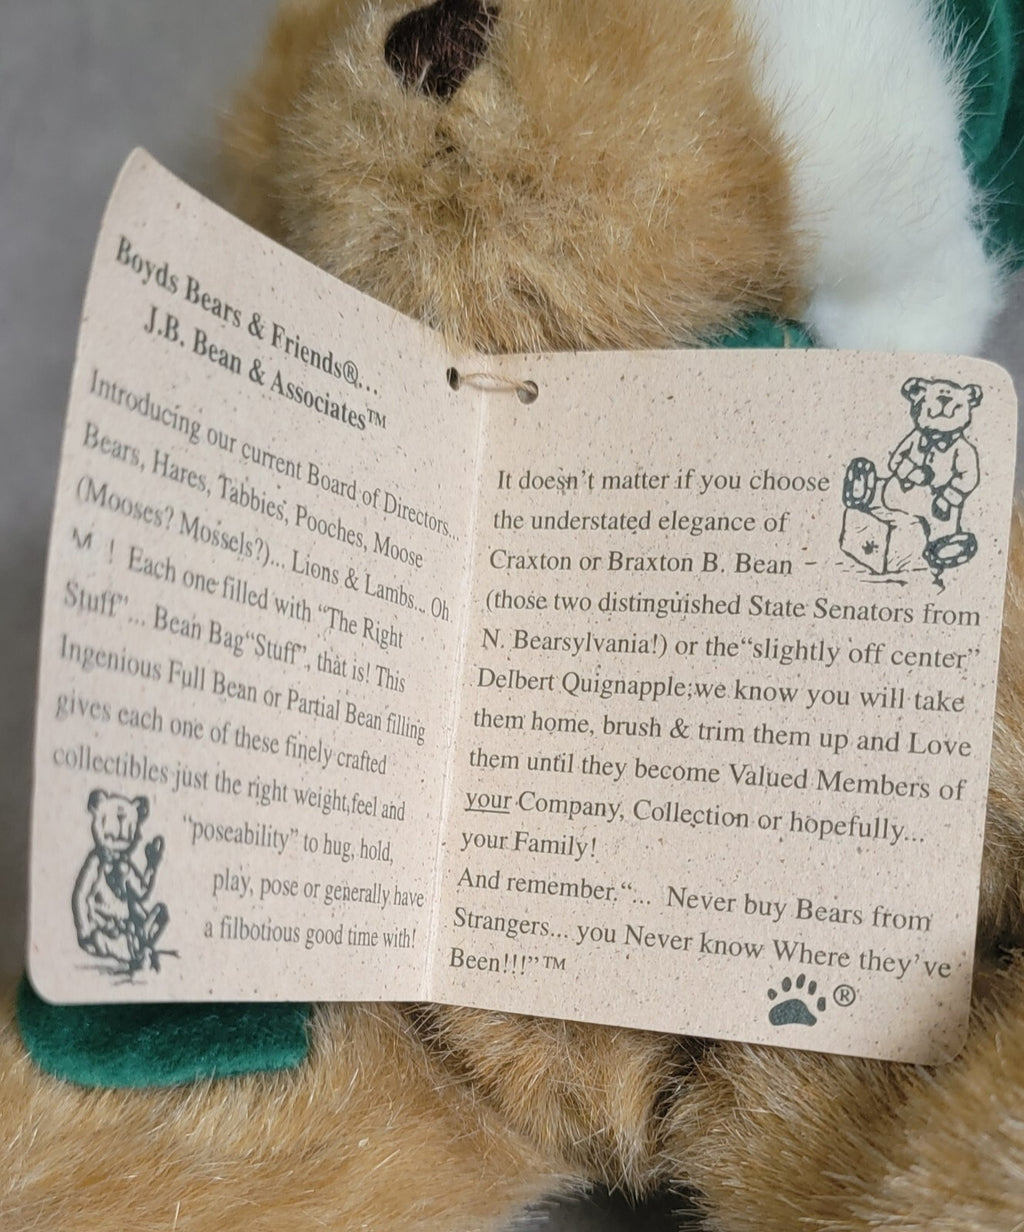 Boyds Bears & Friends®...
J.B. Bean & Associates™
Introducing our current Board of Directors...
Bears, Hares, Tabbies, Pooches, Moose
(Mooses? Mossels?)... Lions & Lambs... Oh
M ! Each one filled with “The Right
Stuff”... Bean Bag“Stuff”, that is! This
Ingenious Full Bean or Partial Bean filling
gives each one of these finely crafted
collectibles just the right weight,feel and
“poseability” to hug, hold,
play, pose or generally have
a filbotious good time with!
It doesn't matter if you choose
the understated elegance of
Craxton or Braxton B. Bean -
(those two distinguished State Senators from
N. Bearsylvania!) or the“slightly off center”
Delbert Quignapple;we know you will take
them home, brush & trim them up and Love
them until they become Valued Members of
your Company, Collection or hopefully...
your Family!
And remember.“... Never buy Bears from
Strangers... you Never know Where they've
Been!!!”™
®